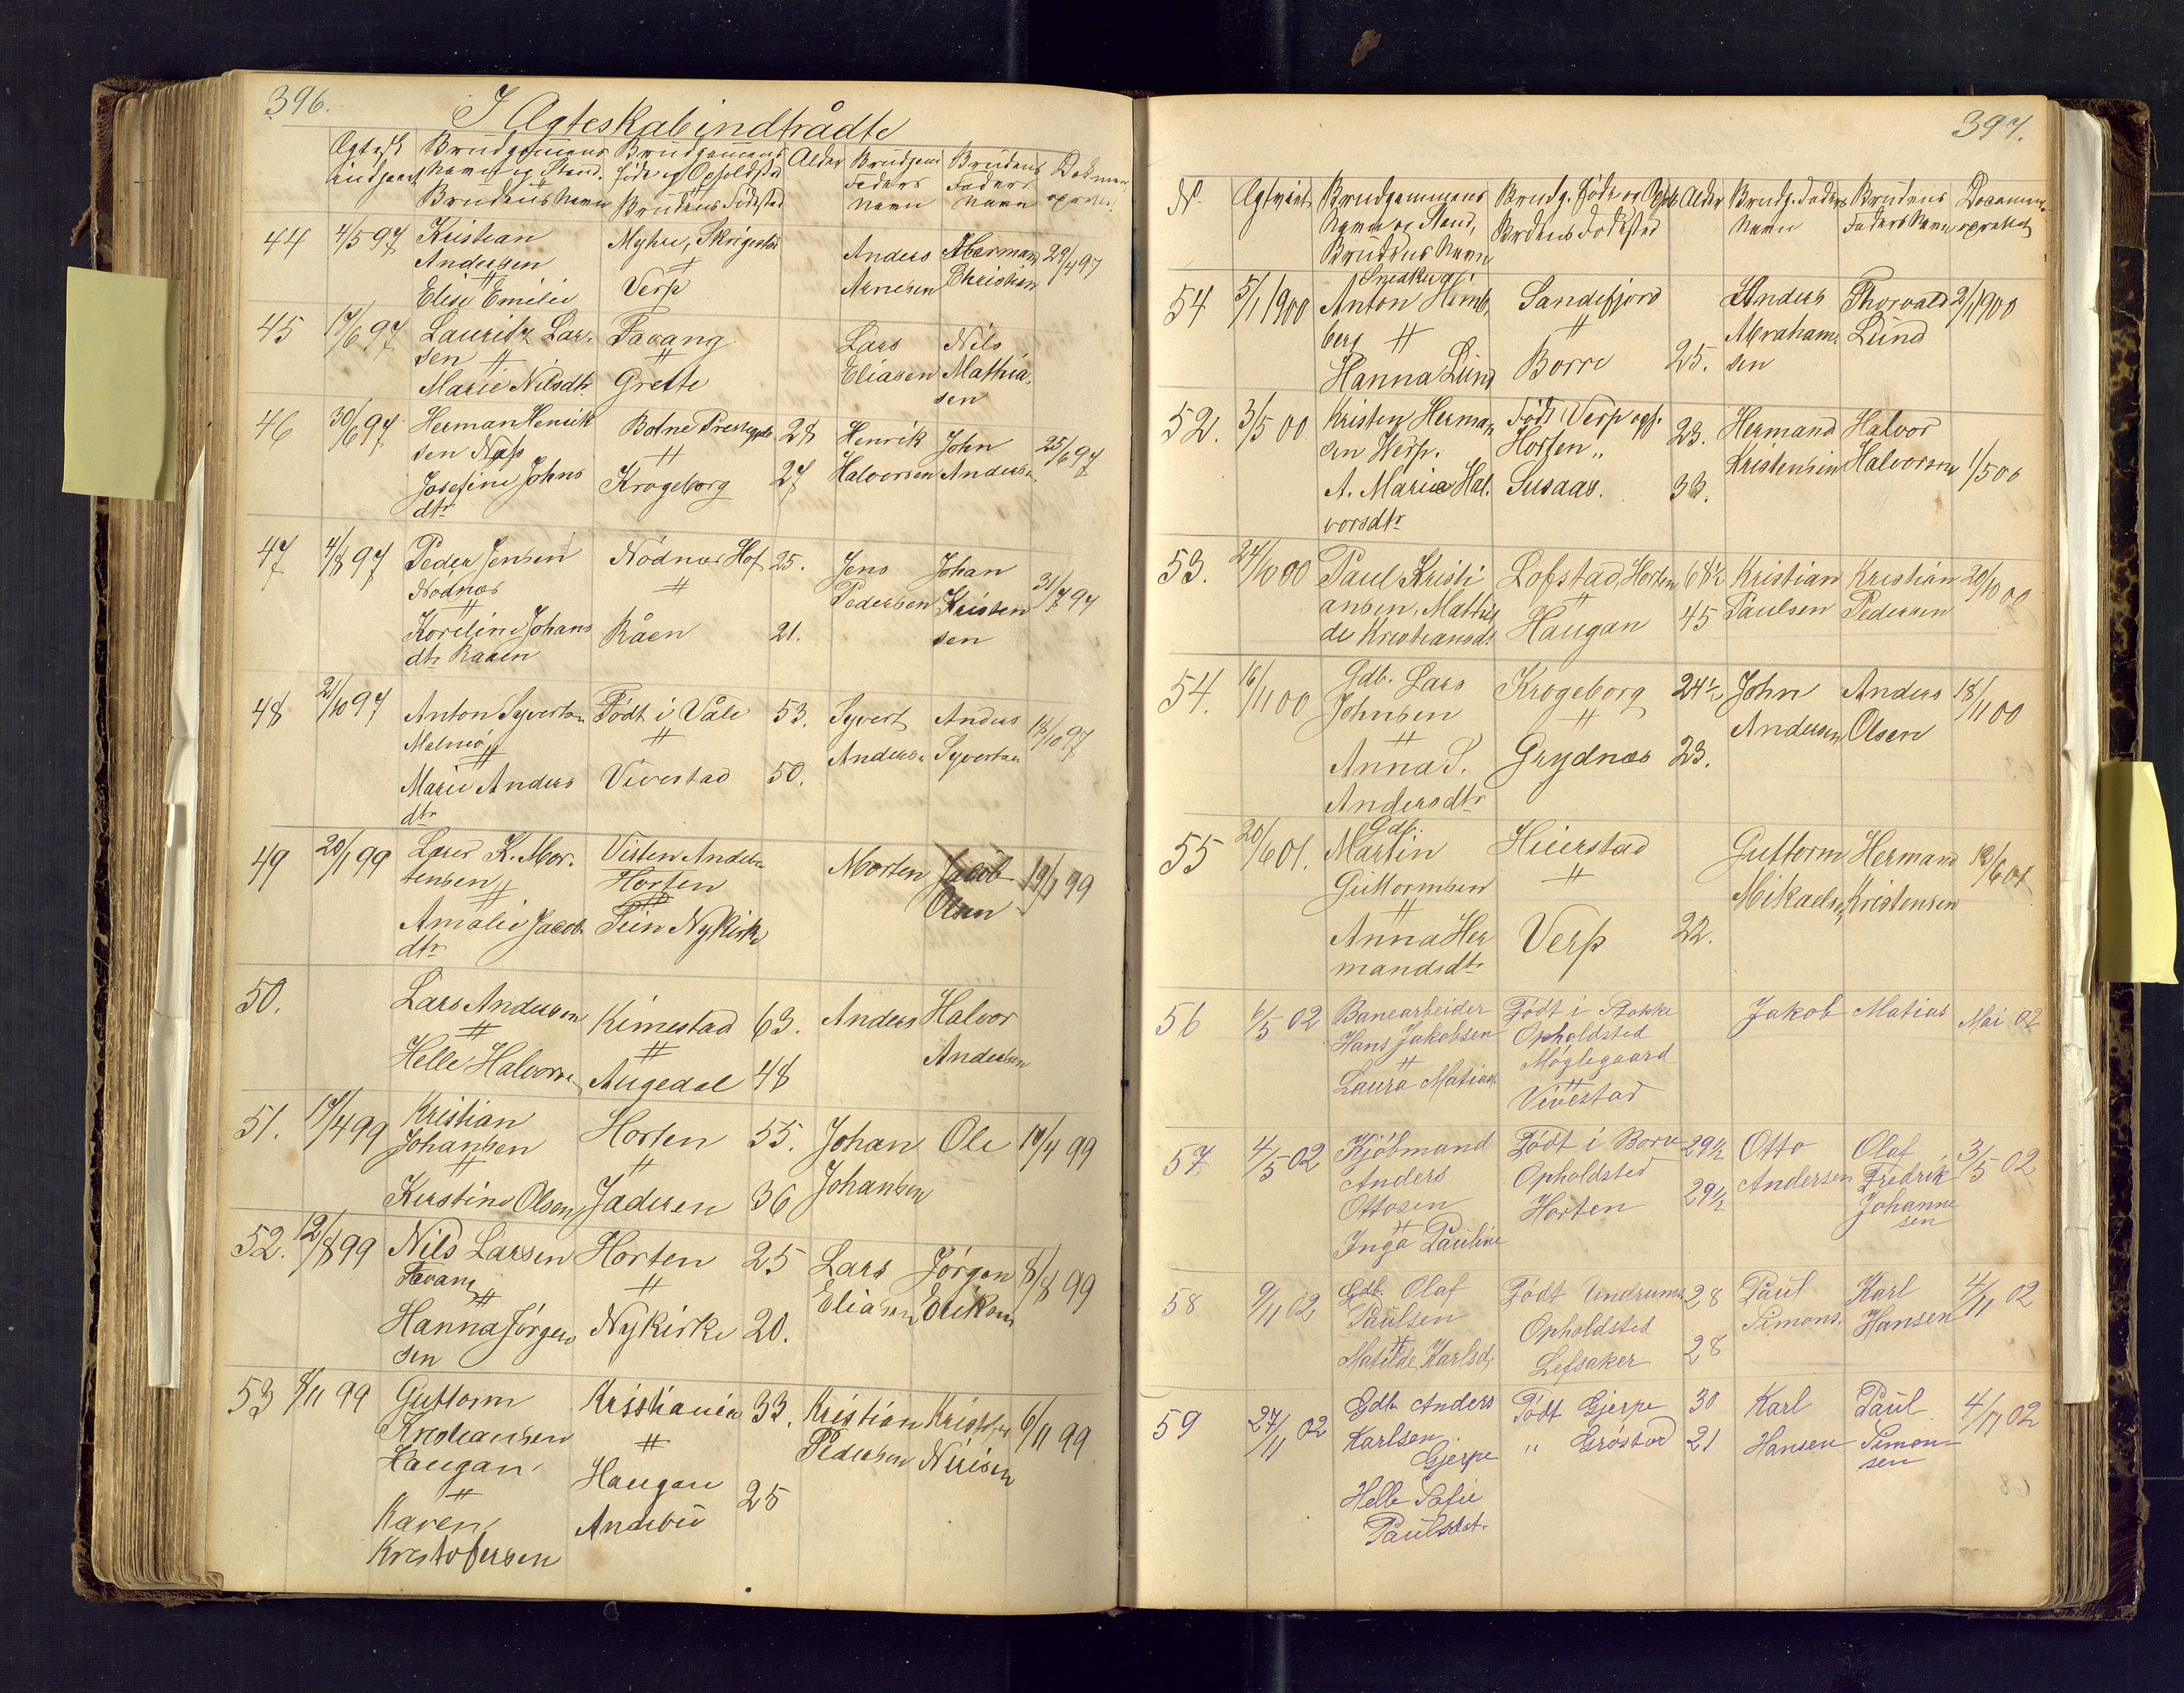 396.
I Ægteskab indtrådte
Ægtesk. indgaaet
Brudgomens Navn og Stand.
Brudens Navn
Brudgomens Føde og Opholdsted
Brudens Fødested
Alder
Brudgoms Faders Navn
Brudens Faders Navn
44 4/5 97 Kristian Myhre, Anders Herman 29/4 97
Andersen Arnesen Christian
Elise Emilie Verp
45 17/6 97 Lauritz Lar- Favang Lars Nils
sen Eliasen Mathia-
Marie Nilsdtr. Grette sen
46 30/6 97 Herman Henrik Botne 28 Henrik John 25/6 97
sen Halvorsen Anders
Josefine Johns Krogeborg 27
dtr
47 4/8 97 Peder Jensen Nodnæs Hof 25. Jens Johan 31/7 97
Nodnæs Pedersen Kristen
Johans Råen 21. sen
dtr Raaen
48 21/10 97 Anton Syvertsen Født i Våle 53. Syvert Anders /10 97
Andersen Syvertsen
Marie Anders Vivestad 50.
dtr
49 20/1 99 K. Mor- Morten Jacob 19/1 99
tensen Horten Olsen
Amalie Jacob Nykirke
dtr
50. Lars Andersen Kimestad 63. Anders Halvor
Helle Halvorsen Augedal 48 Andersen
51. 17/4 99 Kristian Horten 55. Johan Ole /4 99
Johansen Johansen
Kirstine Olsen Jaderen 36
52. 12/8 99 Nils Larsen Horten 25 Lars Jørgen 8/8 99
Favang Eliasen Eriksen
Hanna Jørgen Nykirke 20.
sen
53 9/11 99 Guttorm Kristiania 33. Kristian Kristofer 6/11 99
Kristiansen Pedersen
Haugan Haugan
Karen Andebu 25
Kristofersen
397.
N. Brudgommens Navn og Stand, Brudens Navn
Brudens Fødested
Alder
Brudg. Faders Navn
Brudens Faders Navn
54 5/1 1900 Anton Sandefjord Anders Thorvald 2/1 1900
berg Abraham- Lund
Hanna Lund Borre 25. sen
52. 3/5 00 Kristen Herman Født Verp 23. Hermand Halvor 1/5 00
sen Werp. Horten „ Kristensen Halvorsen
A. Marie Hal- 33.
vorsdtr
53. 24/10 00 Paul Kristi Lofstad, Horten 68½ Kristian Kristian 20/10 00
ansen. Mathil Paulsen Pedersen
de Kristiansdt. Haugan 45
54. 16/11 00 Gdb. Lars Krogeborg 24½ John Anders /11 00
Johnsen Andersen Olsen
Anna S. Grydnæs 23.
Andersdtr
55 20/6 01. Gdb. Martin Hierstad Guttorm Hermand 18/6 01
Guttormsen Mikaelsen Kristensen
Anna Her Verp 22.
mandsdtr
56 6/5 02 Banearbeider Født i Stokke Jakob Matias Mai 02
Hans Jakobsen Opholdsted
Møglegaard
Laura Matiasd. Vivestad
57 4/5 02 Kjøbmand Født i Borre 29½ Otto Olaf 3/5 02
Anders Opholdsted Andersen Fredrik
Ottosen Horten 29½ Johanne
Inga Pauline sen
58 9/11 02 Gdb. Olaf Født Undrums 28 Paul Karl 4/11 02
Paulsen Opholdsted Simons. Hansen
Matilde Karlsd. Lefsaker 28
59 27/11 02 Gdb. Anders Født Gjerpe 30 Karl Paul 4/11 02
Karlsen " Grøstad 21 Hansen Simon-
Gjerpe sen
Helle Sofie
Paulsdat.